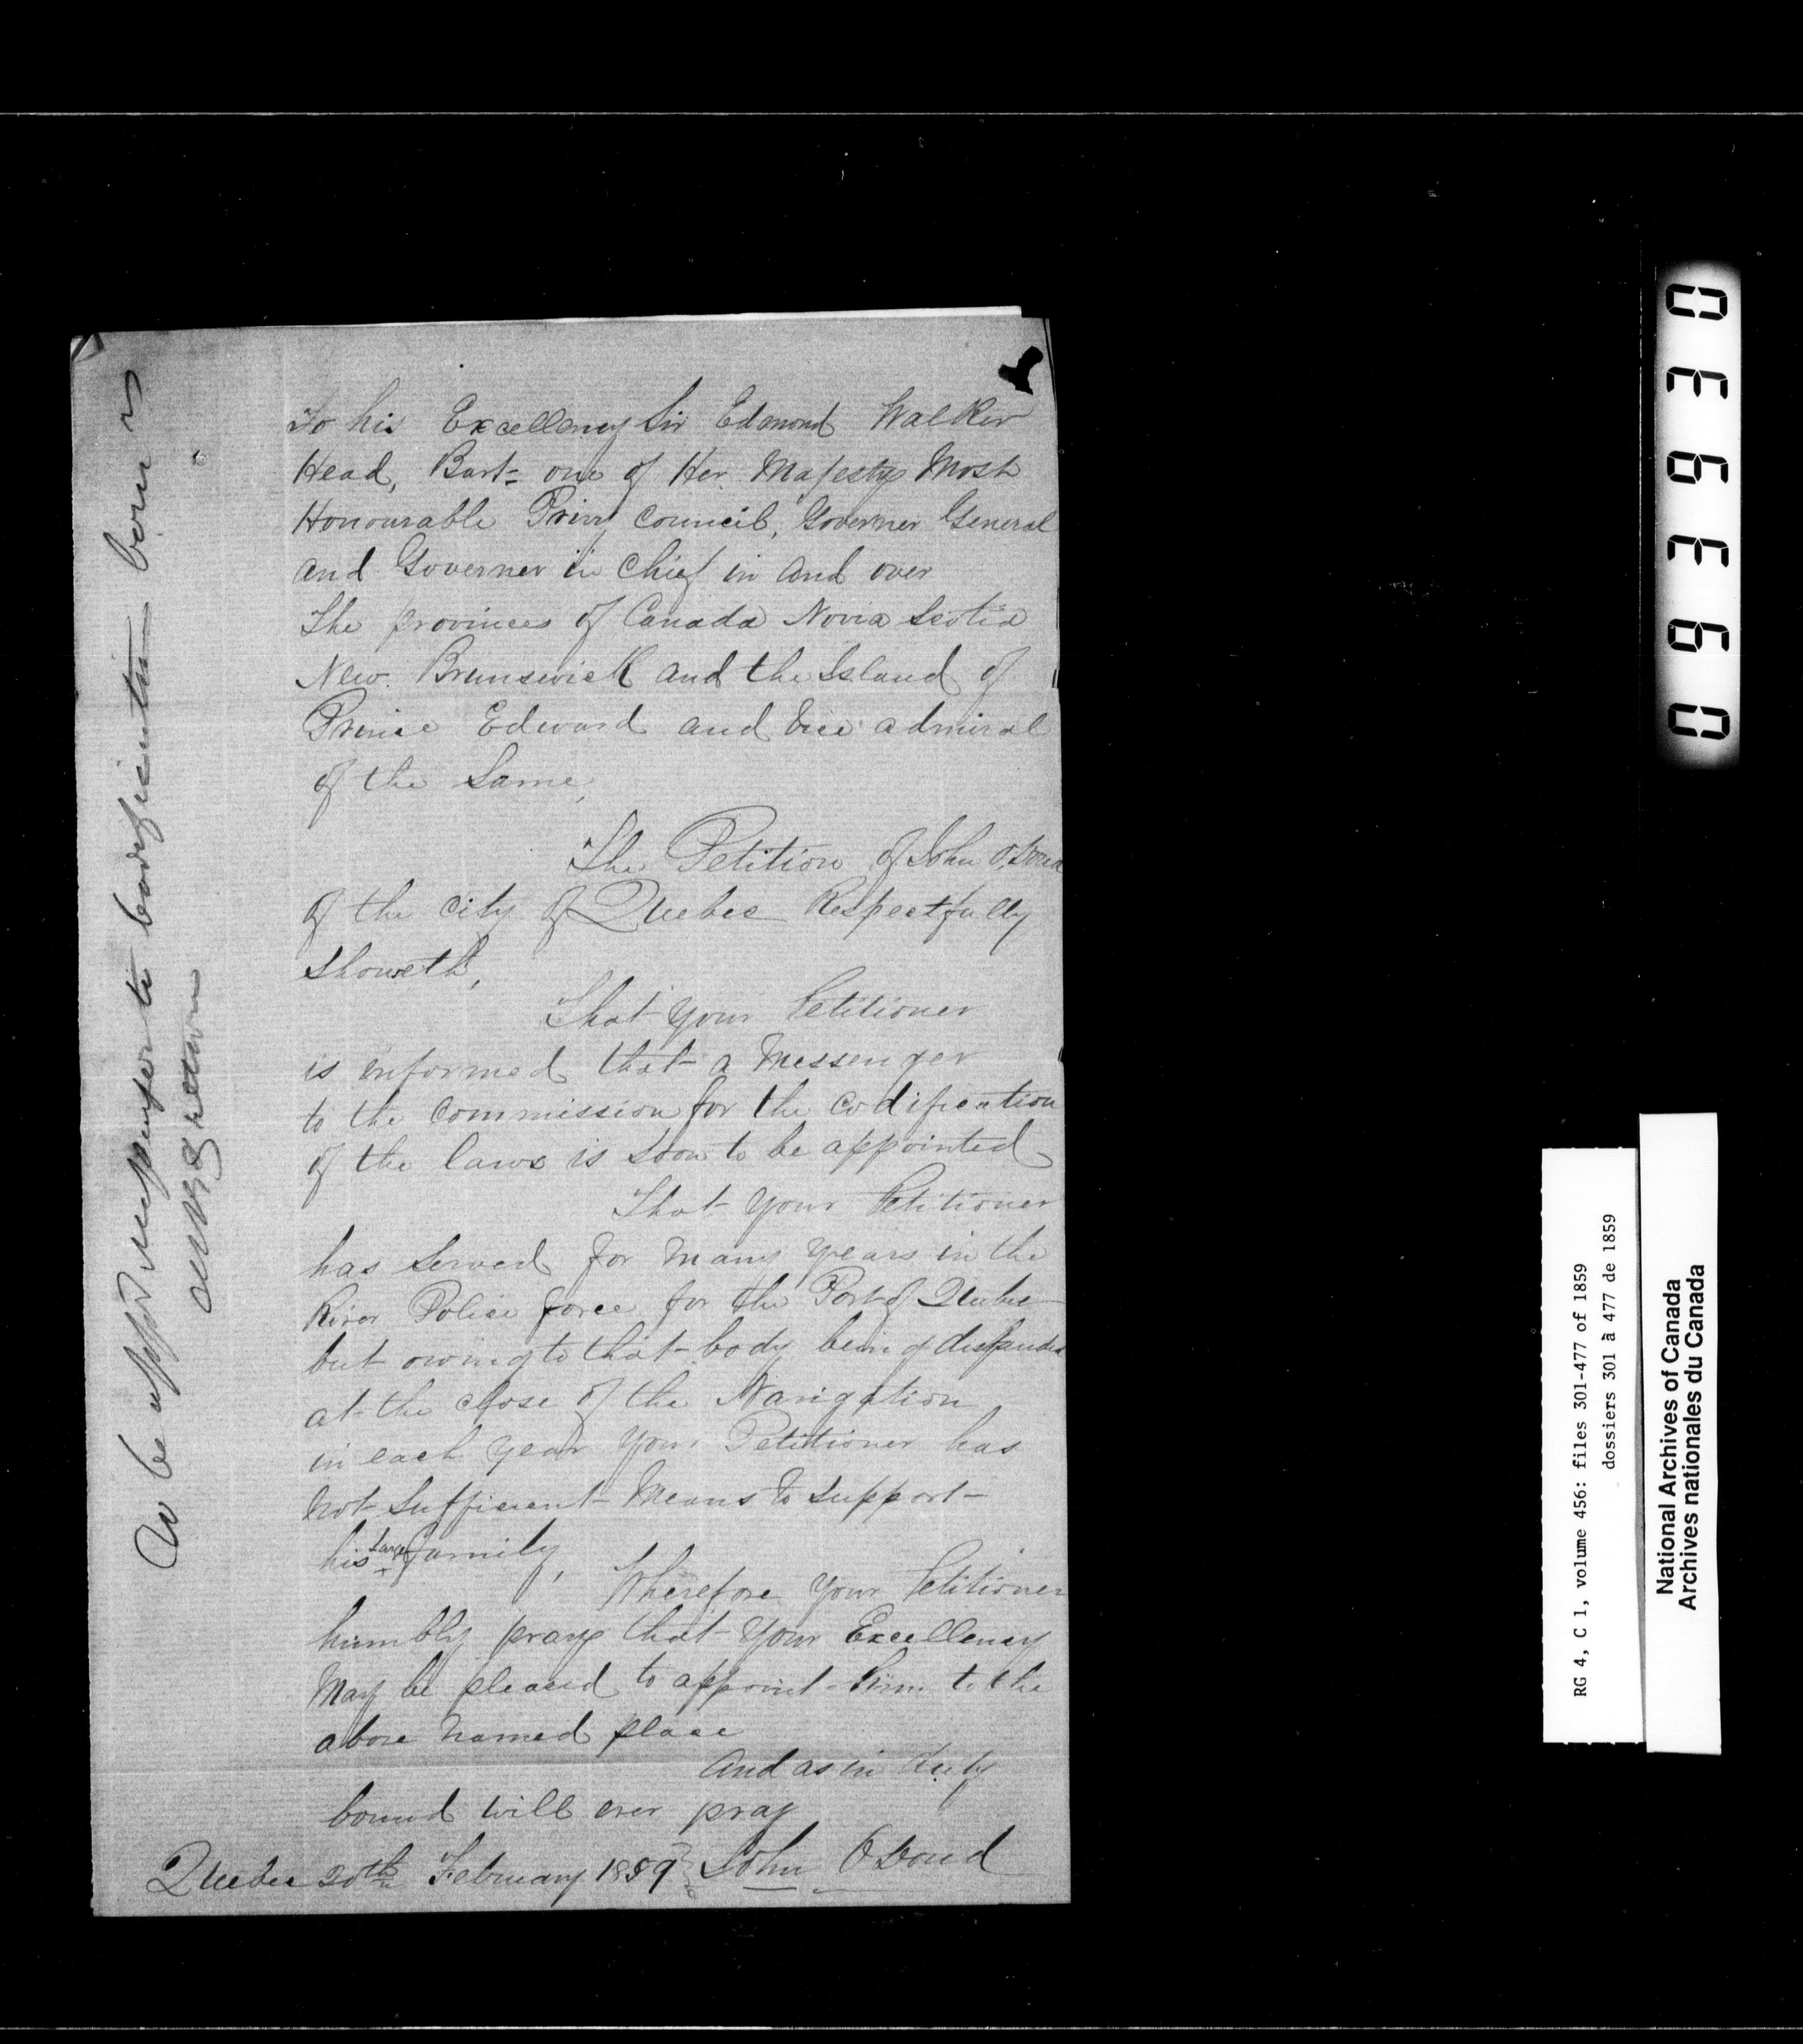 To his Excellency Sir Edmond Walker
Head, Bart= one of Her Majestys Most
Honourable Privy Council, Governer General
and Governer in Chief in and over
The provinces of Canada Novia Scotia
New Brunswick and the Island of
Prince Edward and Vice admiral
of the Same,
The Petition of John O,Doud
of the City of Quebec Respectfully
Showeth,
That your Petitioner
is informed that a Messenger
to the Commission for the Codification
of the laws is soon to be appointed
That your Petitioner
has Served for many years in the
River Police force for the Port of Quebec
but owing to that body being
at the close of the Navigation
in each year your Petitioner has
not Sufficient Means to Support
his large family,
Wherefore your Petitioner
humbly prays that your Excellency
May be pleased to appoint him to the
above named place
And as in duty
bound will ever pray
Quebec 20th February 1859 John ODoud
To be appd Messenger to Codification
0 3 9 3 9 0
RG 4, C 1, volume 456: files 301-477 of 1859
dossiers 301 à 477 de 1859
National Archives of Canada
Archives nationales du Canada